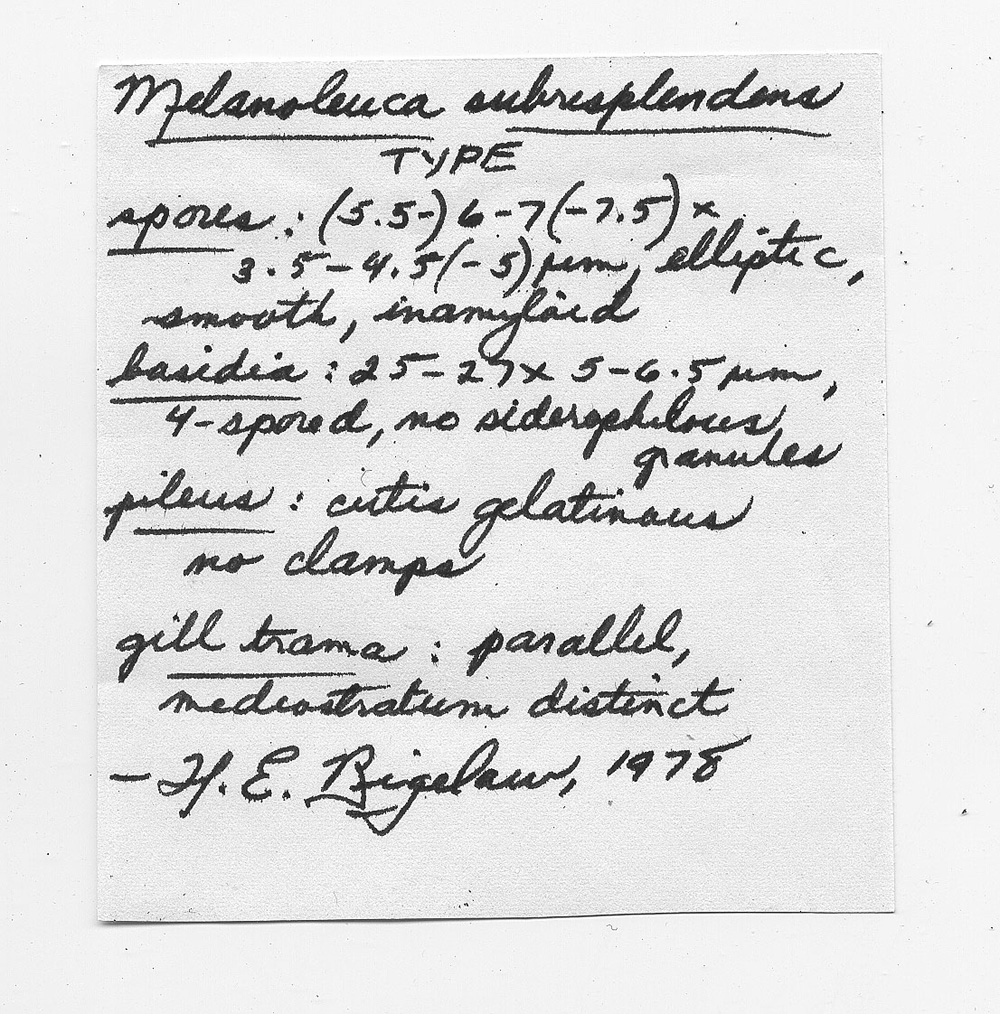 Melanoleuca subresplendens
TYPE
spores : (5.5-) 6-7 (-7.5) x
3.5-4.5 (-5) µm, elliptic,
smooth, inamyloid
basidia : 25-27 x 5-6.5 µm,
4-spored, no siderophilous
granules
pileus : cutis gelatinous
no clamps
gill trama : parallel,
mediostratum distinct
- H. E. Bigelow, 1978